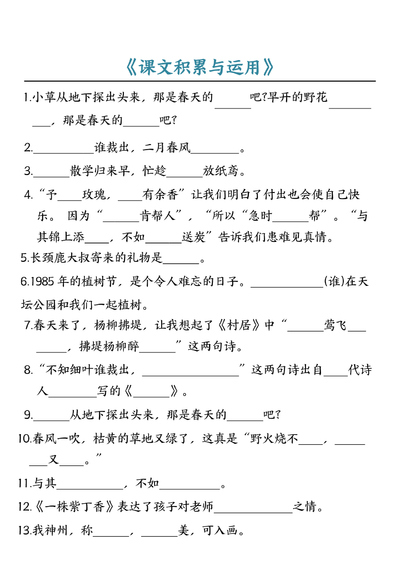 《课文积累与运用》
1.小草从地下探出头来，那是春天的______吧?早开的野花______
___，那是春天的______吧?
2.__________谁裁出，二月春风________。
3.______散学归来早，忙趁______放纸鸢。
4.“予____玫瑰，____有余香”让我们明白了付出也会使自己快
乐。 因为“______肯帮人”，“所以“急时______帮”。“与
其锦上添____，不如______送炭”告诉我们患难见真情。
5.长颈鹿大叔寄来的礼物是______。
6.1985 年的植树节，是个令人难忘的日子。____________(谁)在天
坛公园和我们一起植树。
7.春天来了，杨柳拂堤，让我想起了《村居》中“______莺飞___
_____，拂堤杨柳醉______”这两句诗。
8.“不知细叶谁裁出，________________”这两句诗出自____代诗
人________写的《______》。
9.______从地下探出头来，那是春天的______吧?
10.春风一吹，枯黄的草地又绿了，这真是“野火烧不____，_____
___又____。”
11.与其__________，不如__________。
12.《一株紫丁香》表达了孩子对老师_____________之情。
13.我神州，称______，______美，可入画。